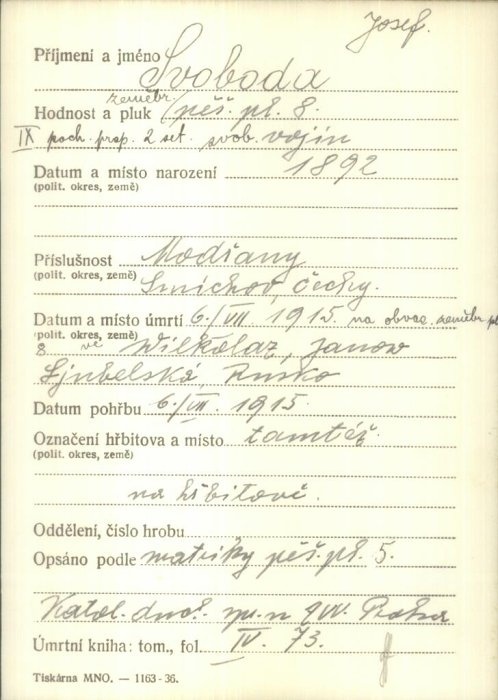 Josef.
Příjmení a jméno Svoboda
zeměbr.
Hodnost a pluk pěš. pl. 8.
IX poch. prap. 2 set. svob. vojín
Datum a místo narození 1892
(polit. okres, země)
Příslušnost Modřany
(polit. okres, země) Smíchov, Čechy.
Datum a místo úmrtí 6./VII 1915 na obvaz. zeměbr. pl.
(polit. okres, země)
8 ve Wilkolaz, Janow
Ljubelská, Rusko
Datum pohřbu 6./VII. 1915.
Označení hřbitova a místo tamtéž
(polit. okres, země)
na hřbitově.
Oddělení, číslo hrobu
Opsáno podle matriky pěš. pl. 5.
Katol. duch. Praha
Úmrtní kniha: tom., fol. IV. 73.
Tiskárna MNO. — 1163-36.